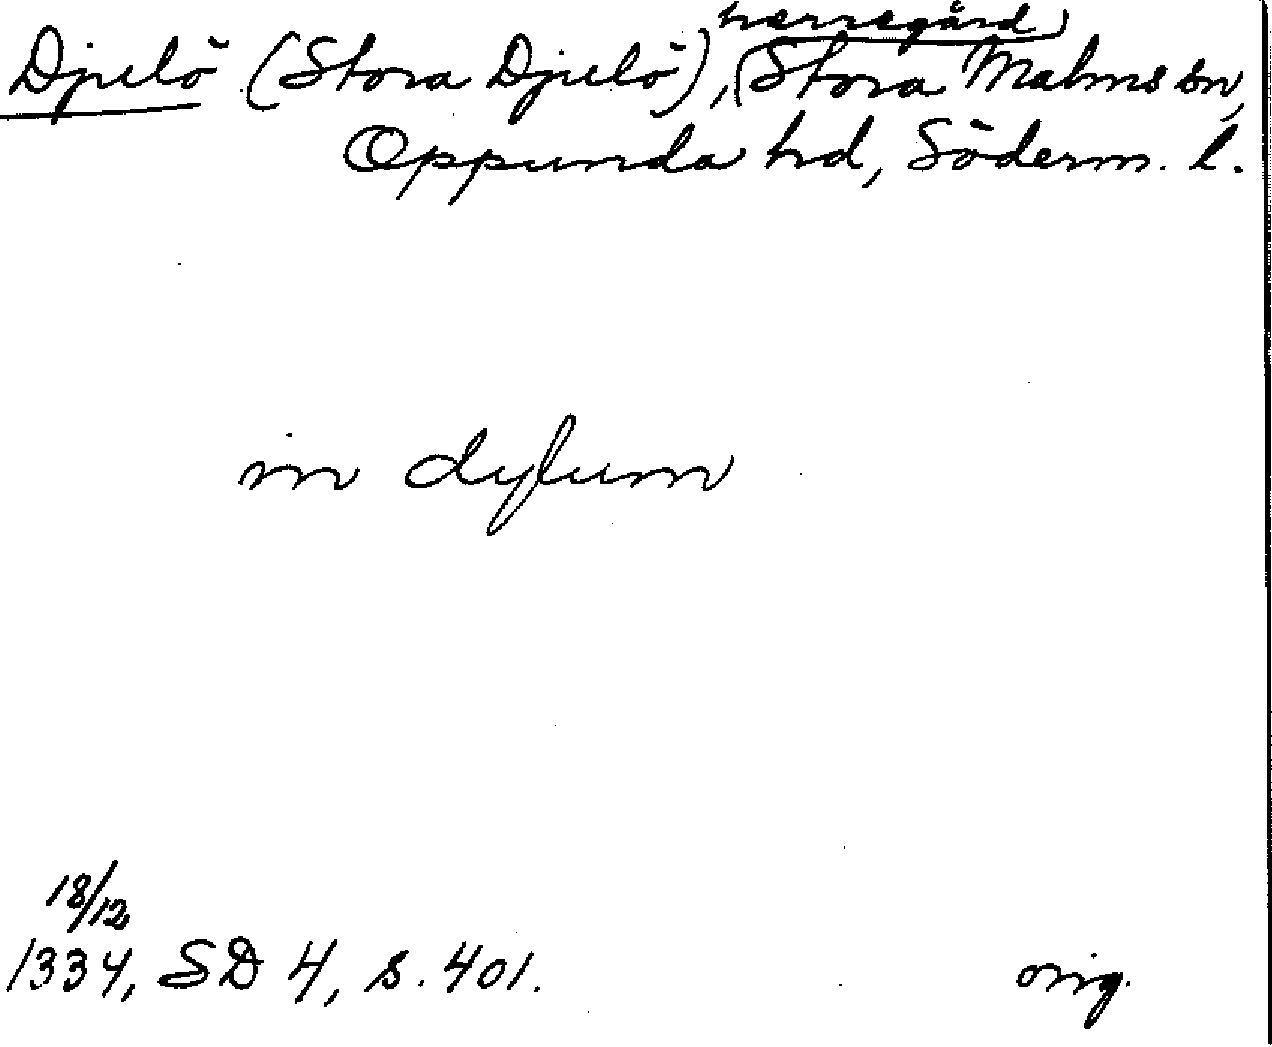 Djulö (Stora Djulö), herregård, Stora Malms sn,
Oppunda hd, Söderm. l.
in dylum
18/12
1334, SD 4, s. 401.
orig.